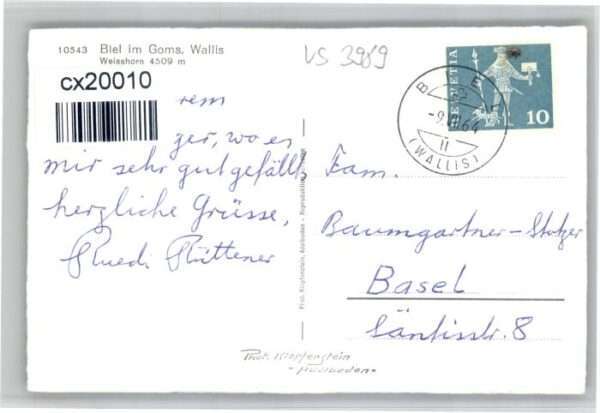 10543 Biel im Goms, Wallis
Weisshorn 4509 m
cx20010
VS 3989
HELVETIA
10
-9.VII.64
(WALLIS)
rem
ger, wo es
mir sehr gut gefällt,
herzliche Grüsse,
Ruedi Rüttener
Phot. Klopfenstein, Adelboden - Reproduktion
Fam.
Baumgartner-Stolzer
Basel
Säntisstr. 8
Phot. Klopfenstein
- Adelboden -